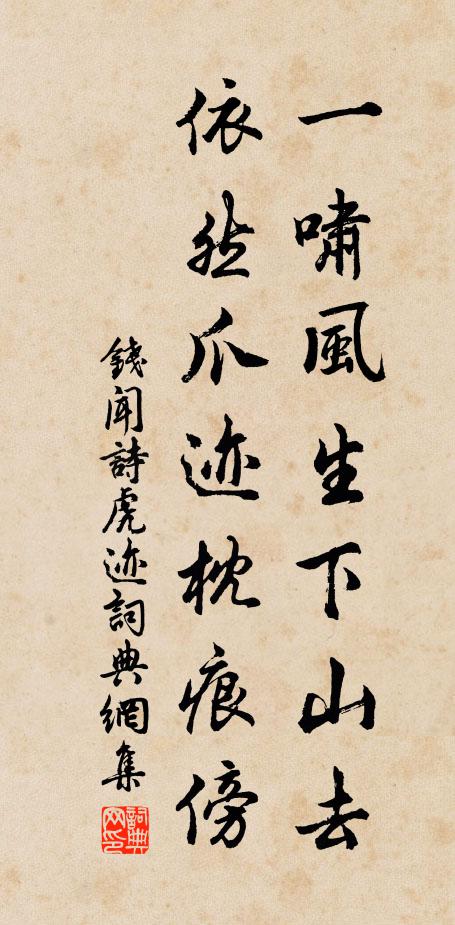 一嘯風生下山去
依然爪迹枕痕傍
錢聞詩虎迹詞典網集
詞典网印